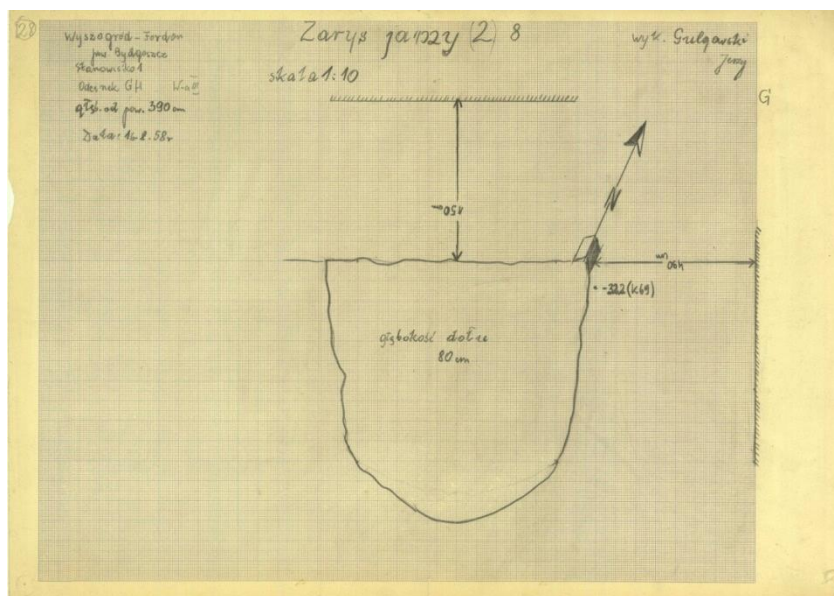 28
Wyszogród-Fordon
pow. Bydgoszcz
Stanowisko 1
Odcinek GH W-a III
głęb. od pow. 390 cm
Data: 16.8.58r
Zarys jamy (2) 8
skala 1:10
wyk. Gulgowski
Jerzy
G
N
-322 (K69)
głębokość dołu
80 cm